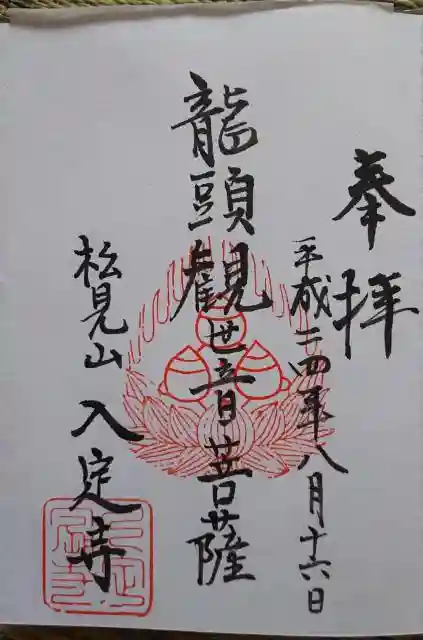 奉拝
平成二四年八月十六日
龍頭観世音菩薩
松見山
入定寺